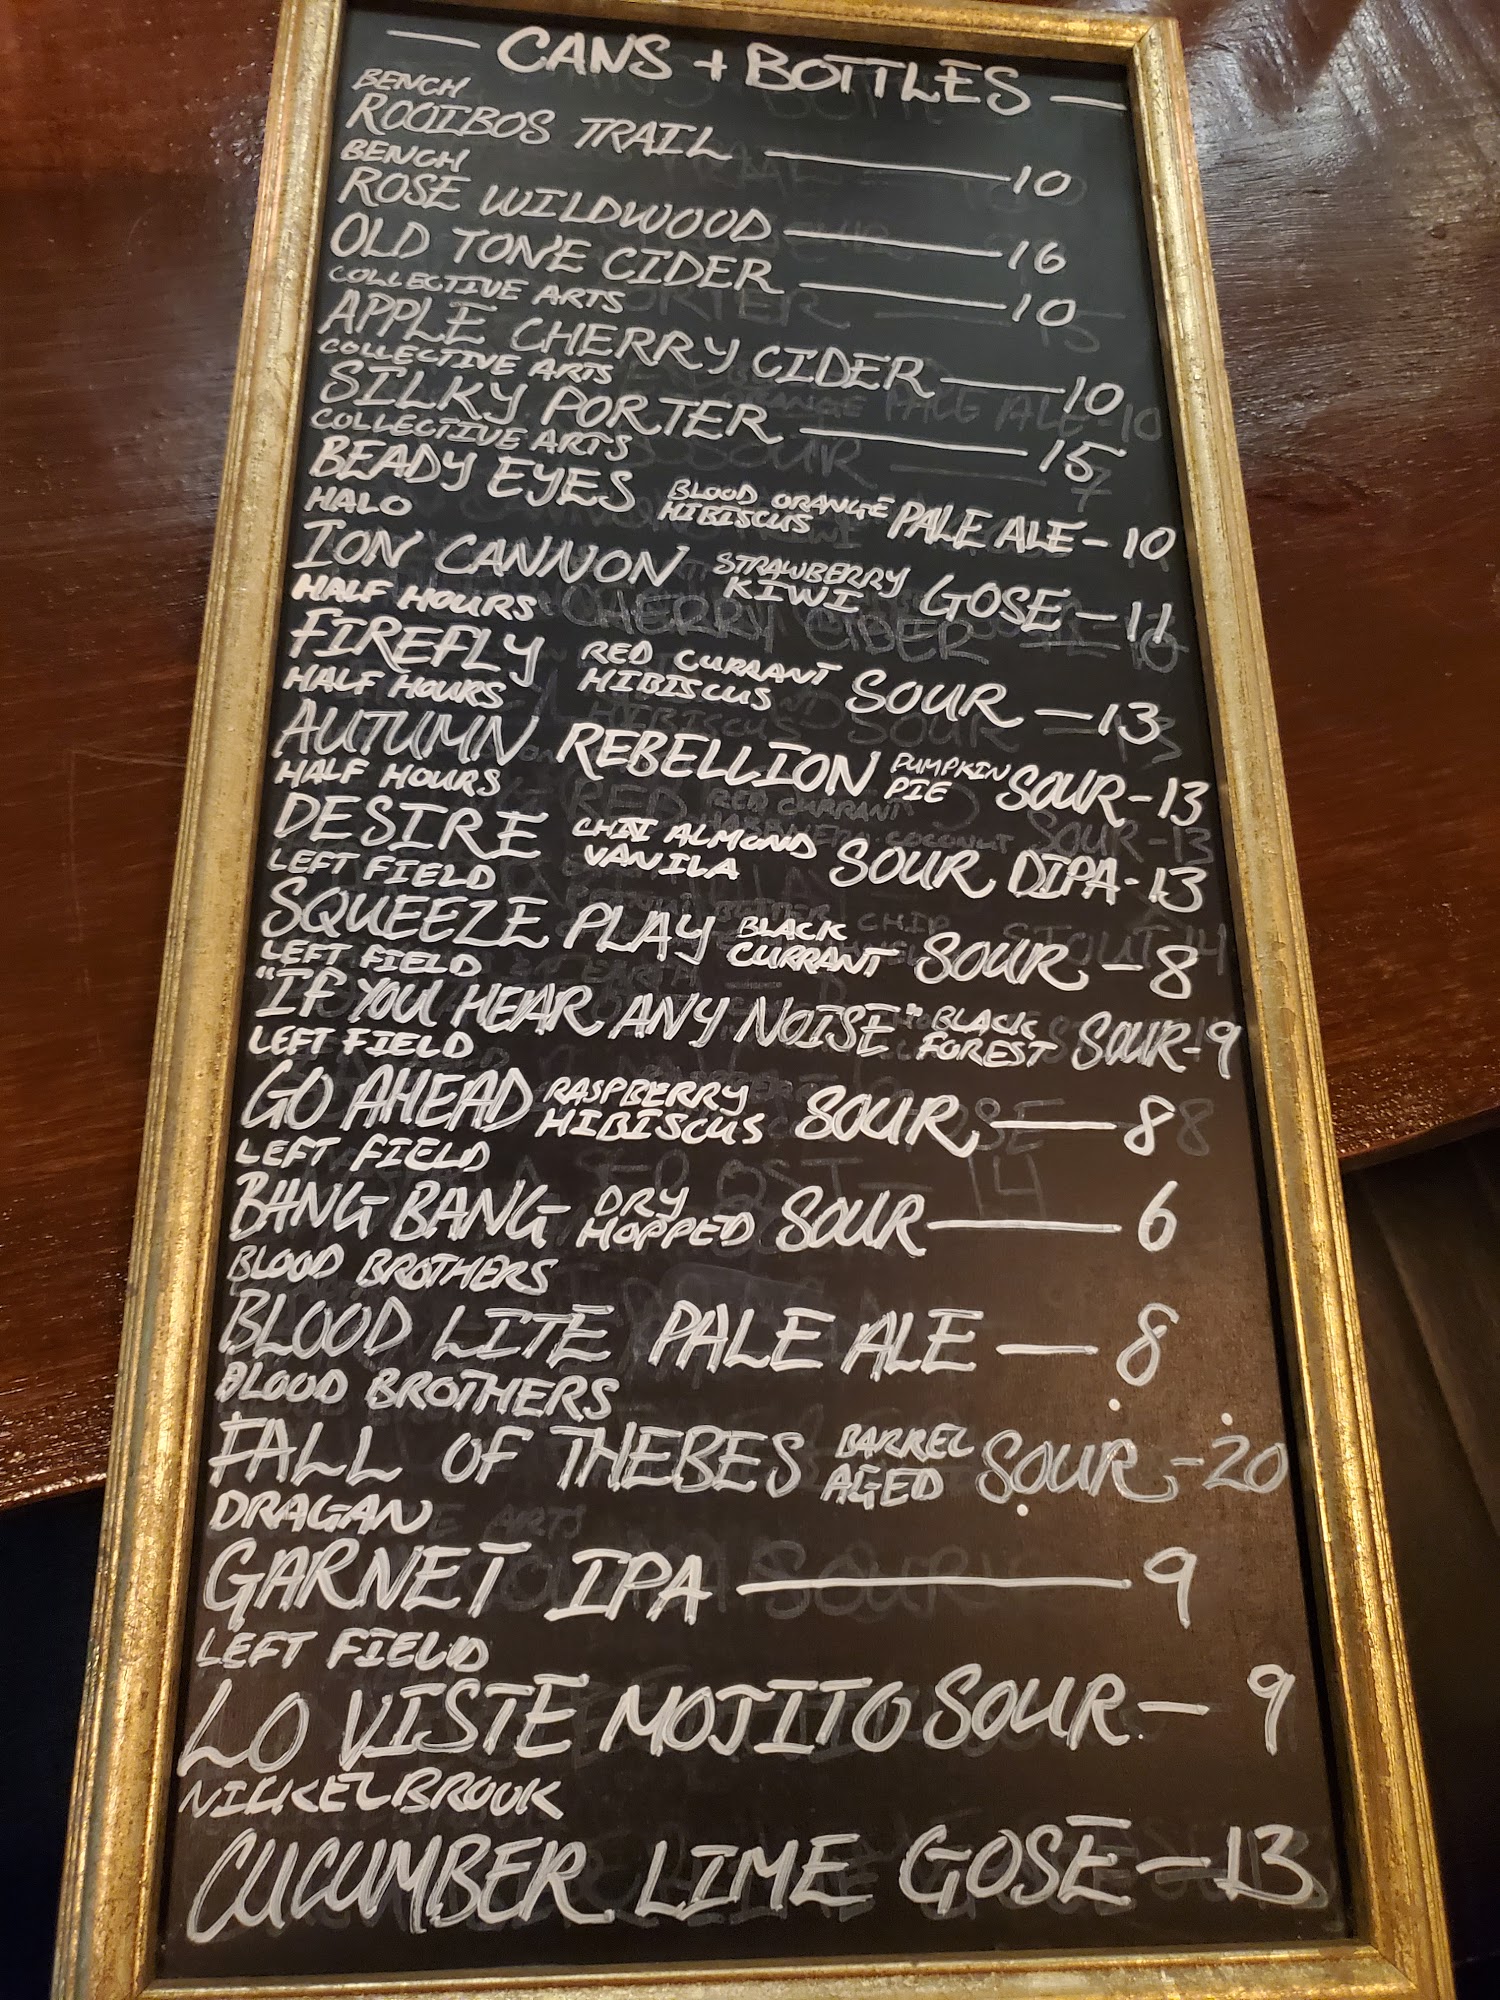 — CANS + BOTTLES —
BENCH
ROOIBOS TRAIL — 10
BENCH
ROSE WILDWOOD — 16
OLD TONE CIDER — 10
COLLECTIVE ARTS
APPLE CHERRY CIDER — 10
COLLECTIVE ARTS
SILKY PORTER — 15
COLLECTIVE ARTS
BEADY EYES BLOOD ORANGE HIBISCUS PALE ALE - 10
HALO
ION CANNON STRAWBERRY KIWI GOSE - 11
HALF HOURS
FIREFLY RED CURRANT HIBISCUS SOUR - 13
HALF HOURS
AUTUMN REBELLION PUMPKIN PIE SOUR - 13
HALF HOURS
DESIRE CHAI ALMOND VANILA SOUR DIPA - 13
LEFT FIELD
SQUEEZE PLAY BLACK CURRANT SOUR - 8
LEFT FIELD
"IF YOU HEAR ANY NOISE" BLACK FOREST SOUR - 9
LEFT FIELD
GO AHEAD RASPBERRY HIBISCUS SOUR — 8
LEFT FIELD
BANG BANG DRY HOPPED SOUR — 6
BLOOD BROTHERS
BLOOD LITE PALE ALE — 8
BLOOD BROTHERS
FALL OF THEBES BARREL AGED SOUR - 20
DRAGAN
GARNET IPA — 9
LEFT FIELD
LO VISTE MOJITO SOUR — 9
NICKELBROOK
CUCUMBER LIME GOSE — 13